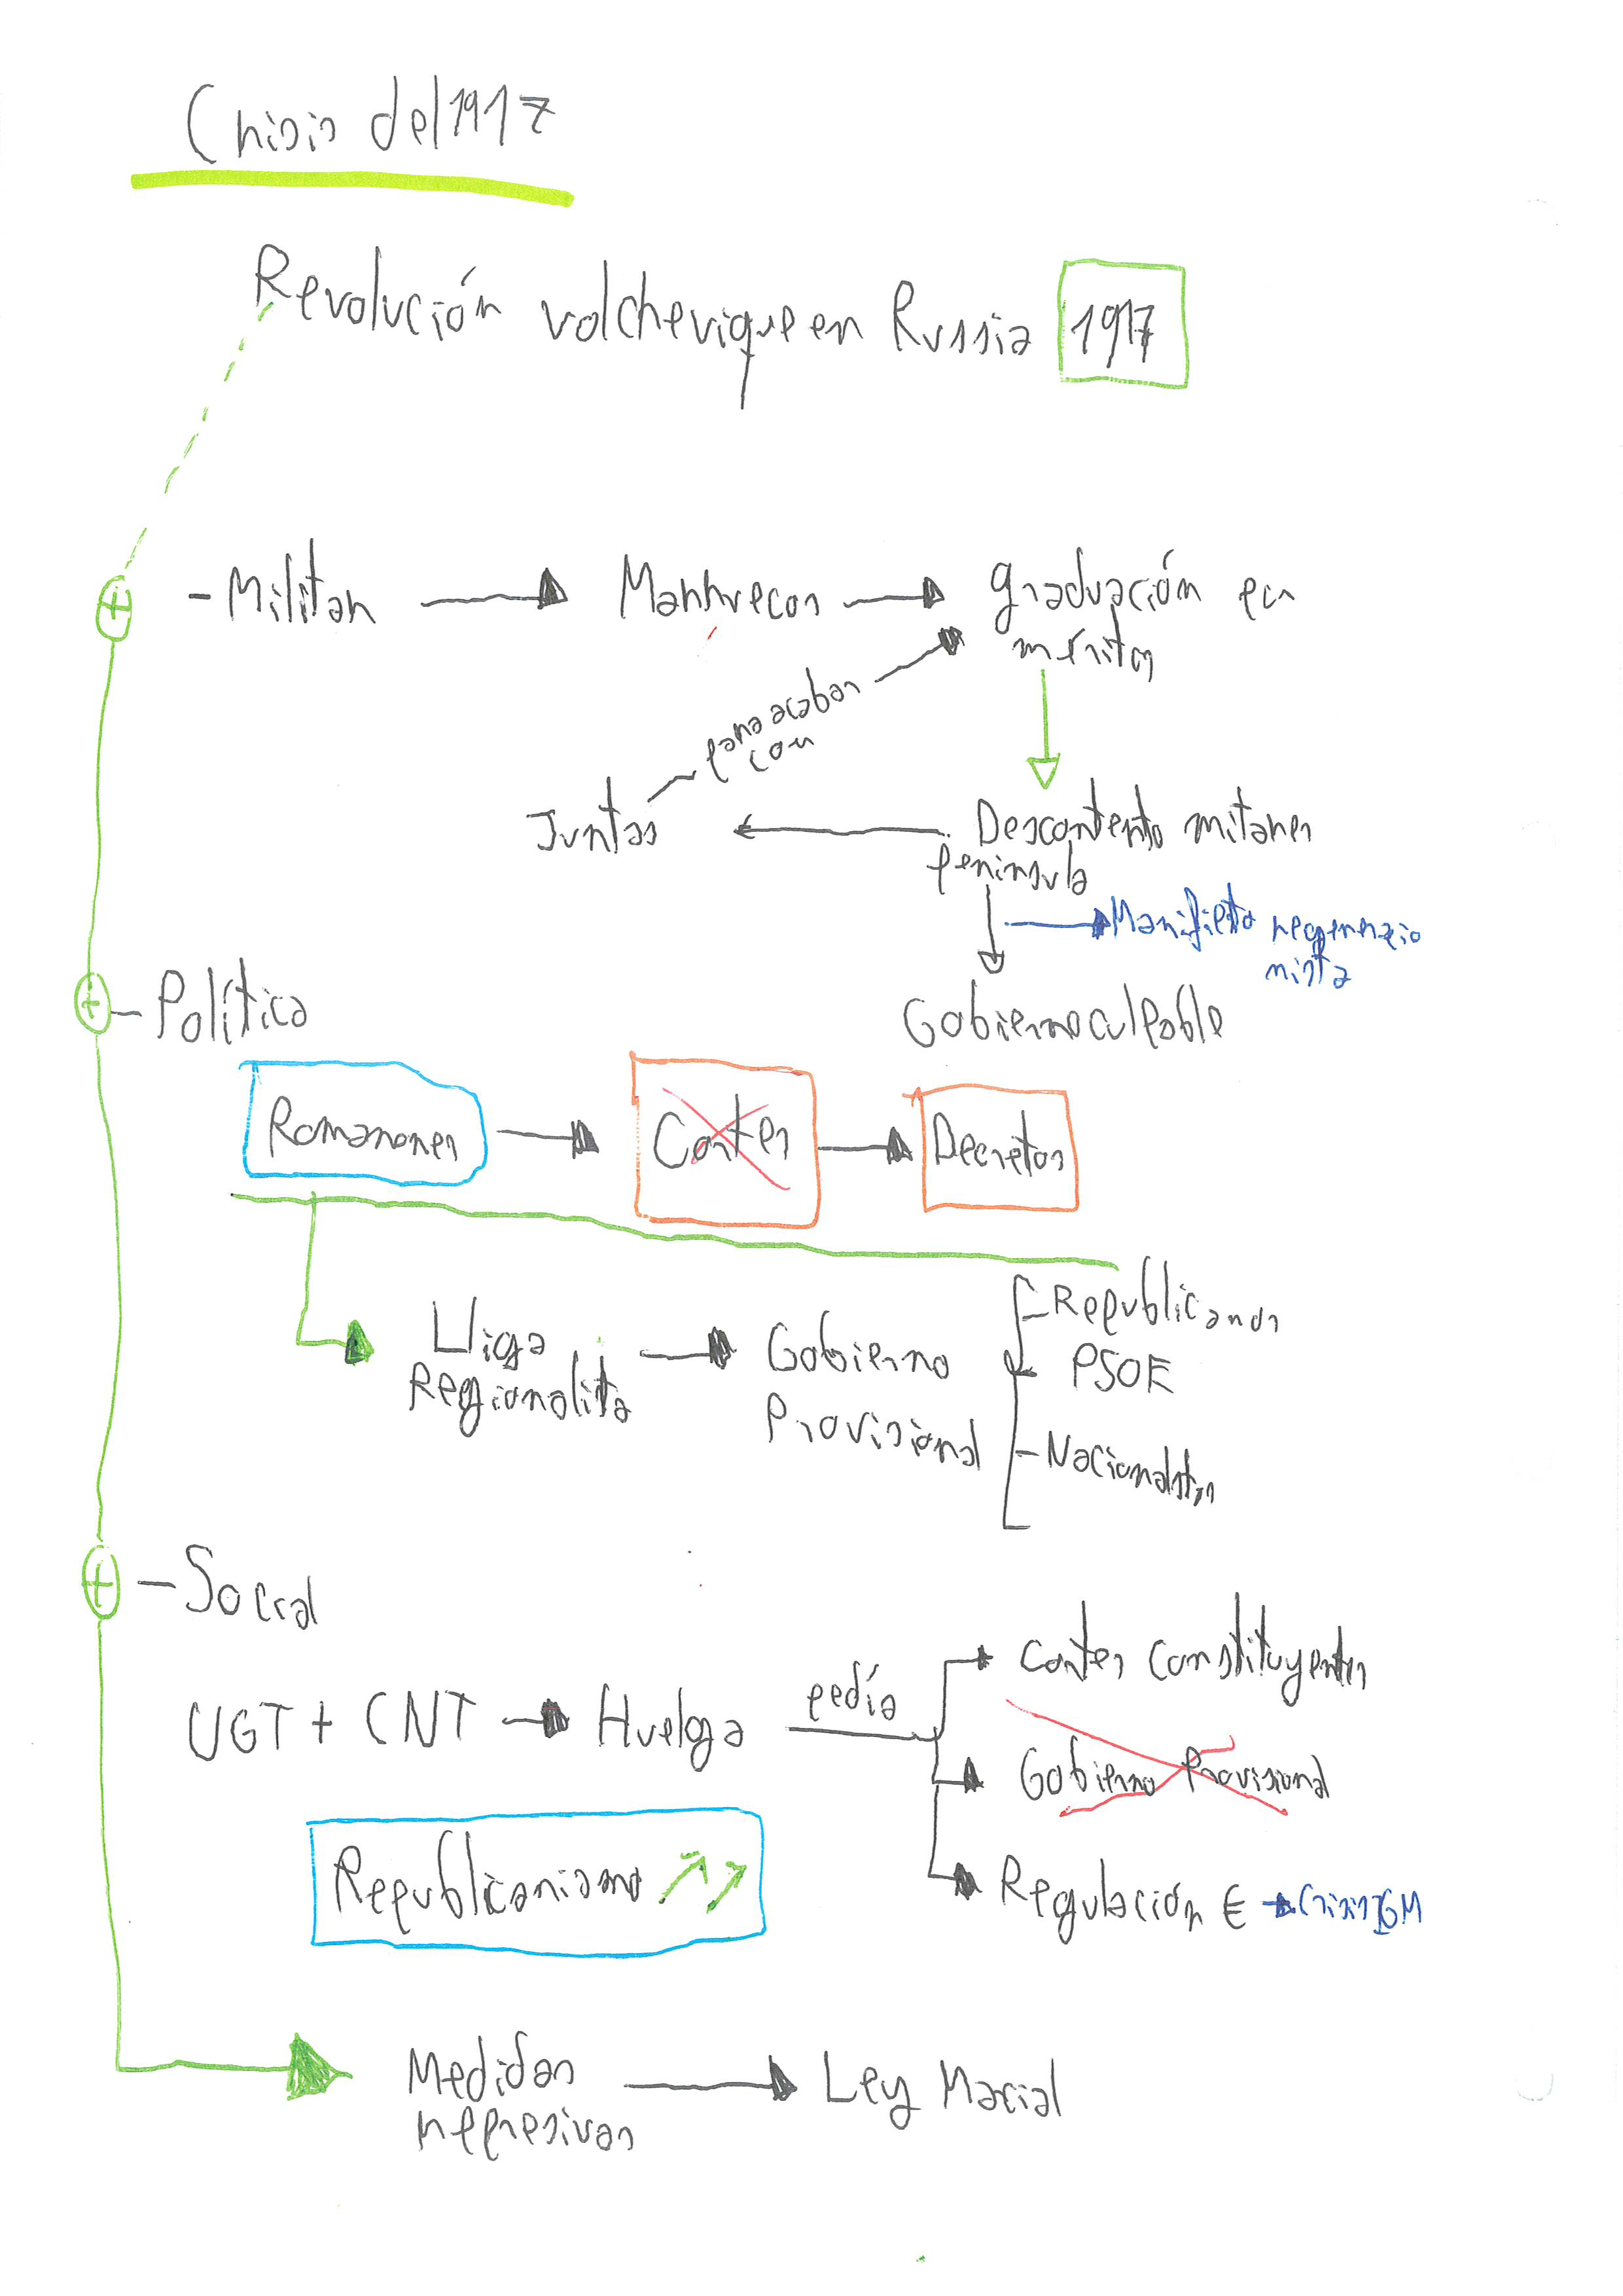 Crisis del 1917
Revolución volchevique en Russia 1917
- Militar → Marruecos → graduación en
méritos
para acabar
con
Juntas ← Descontento mitares
península
→ Manifiesto regeneracio
nista
- Política
Gobierno culpable
Romanones → Cortes → Decretos
Lliga → Gobierno
Regionalita Provisional
- Republicanos
- PSOE
- Nacionalistas
- Social
UGT + CNT → Huelga pedía
→ Cortes Constituyentes
→ Gobierno Provisional
→ Regulación € → Crisis IGM
Republicanismo ↗↗
Medidas → Ley Macial
represivas